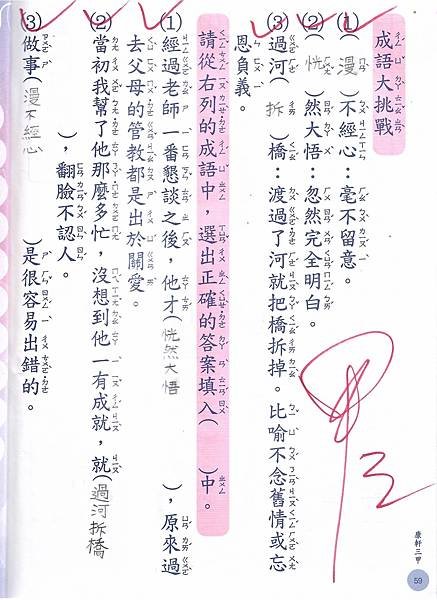 成語大挑戰
⑴(漫)不經心：毫不留意。
⑵(恍)然大悟：忽然完全明白。
⑶過河(拆)橋：渡過了河就把橋拆掉。比喻不念舊情或忘
恩負義。
請從右列的成語中，選出正確的答案填入(　　)中。
⑴經過老師一番懇談之後，他才(恍然大悟)，原來過
去父母的管教都是出於關愛。
⑵當初我幫了他那麼多忙，沒想到他一有成就，就(過河拆橋
)，翻臉不認人。
⑶做事(漫不經心)是很容易出錯的。
康軒三甲
59